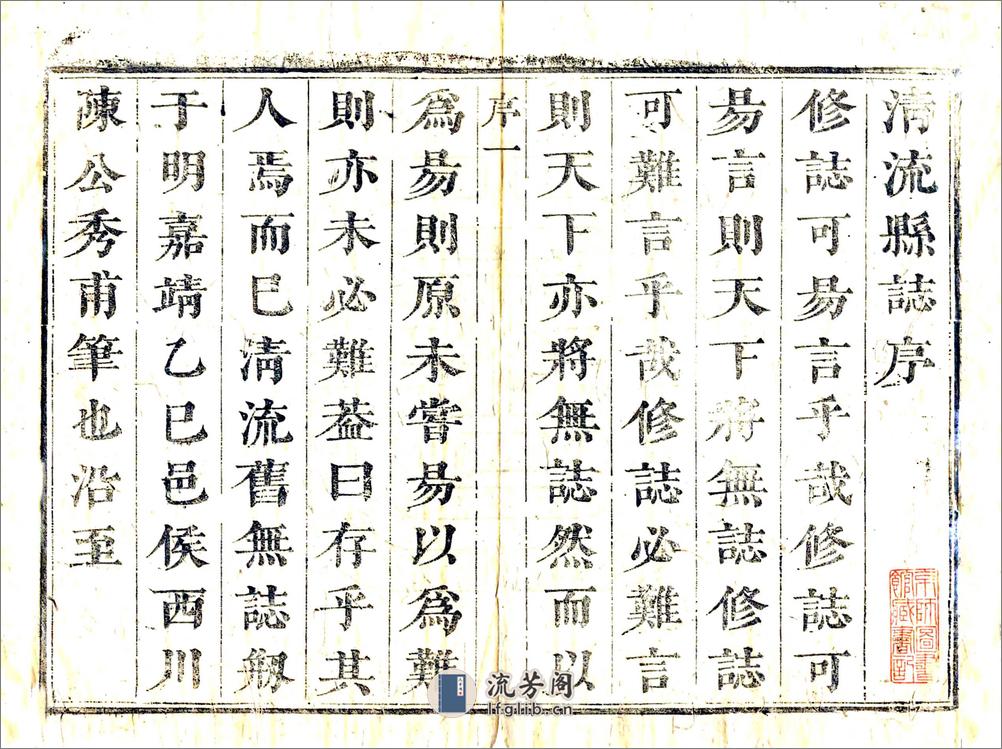 淸流縣誌序
修誌可昜言乎哉修誌可
昜言則天下將無誌修誌
可難言乎哉修誌必難言
則天下亦將無誌然而以
序一
爲昜則原未嘗昜以爲難
則亦未必難葢曰存乎其
人焉而巳淸流舊無誌剏
于明嘉靖乙巳邑侯西川
陳公秀甫筆也沿至
京師圖書館藏書記
流芳阁
lfglib.cn